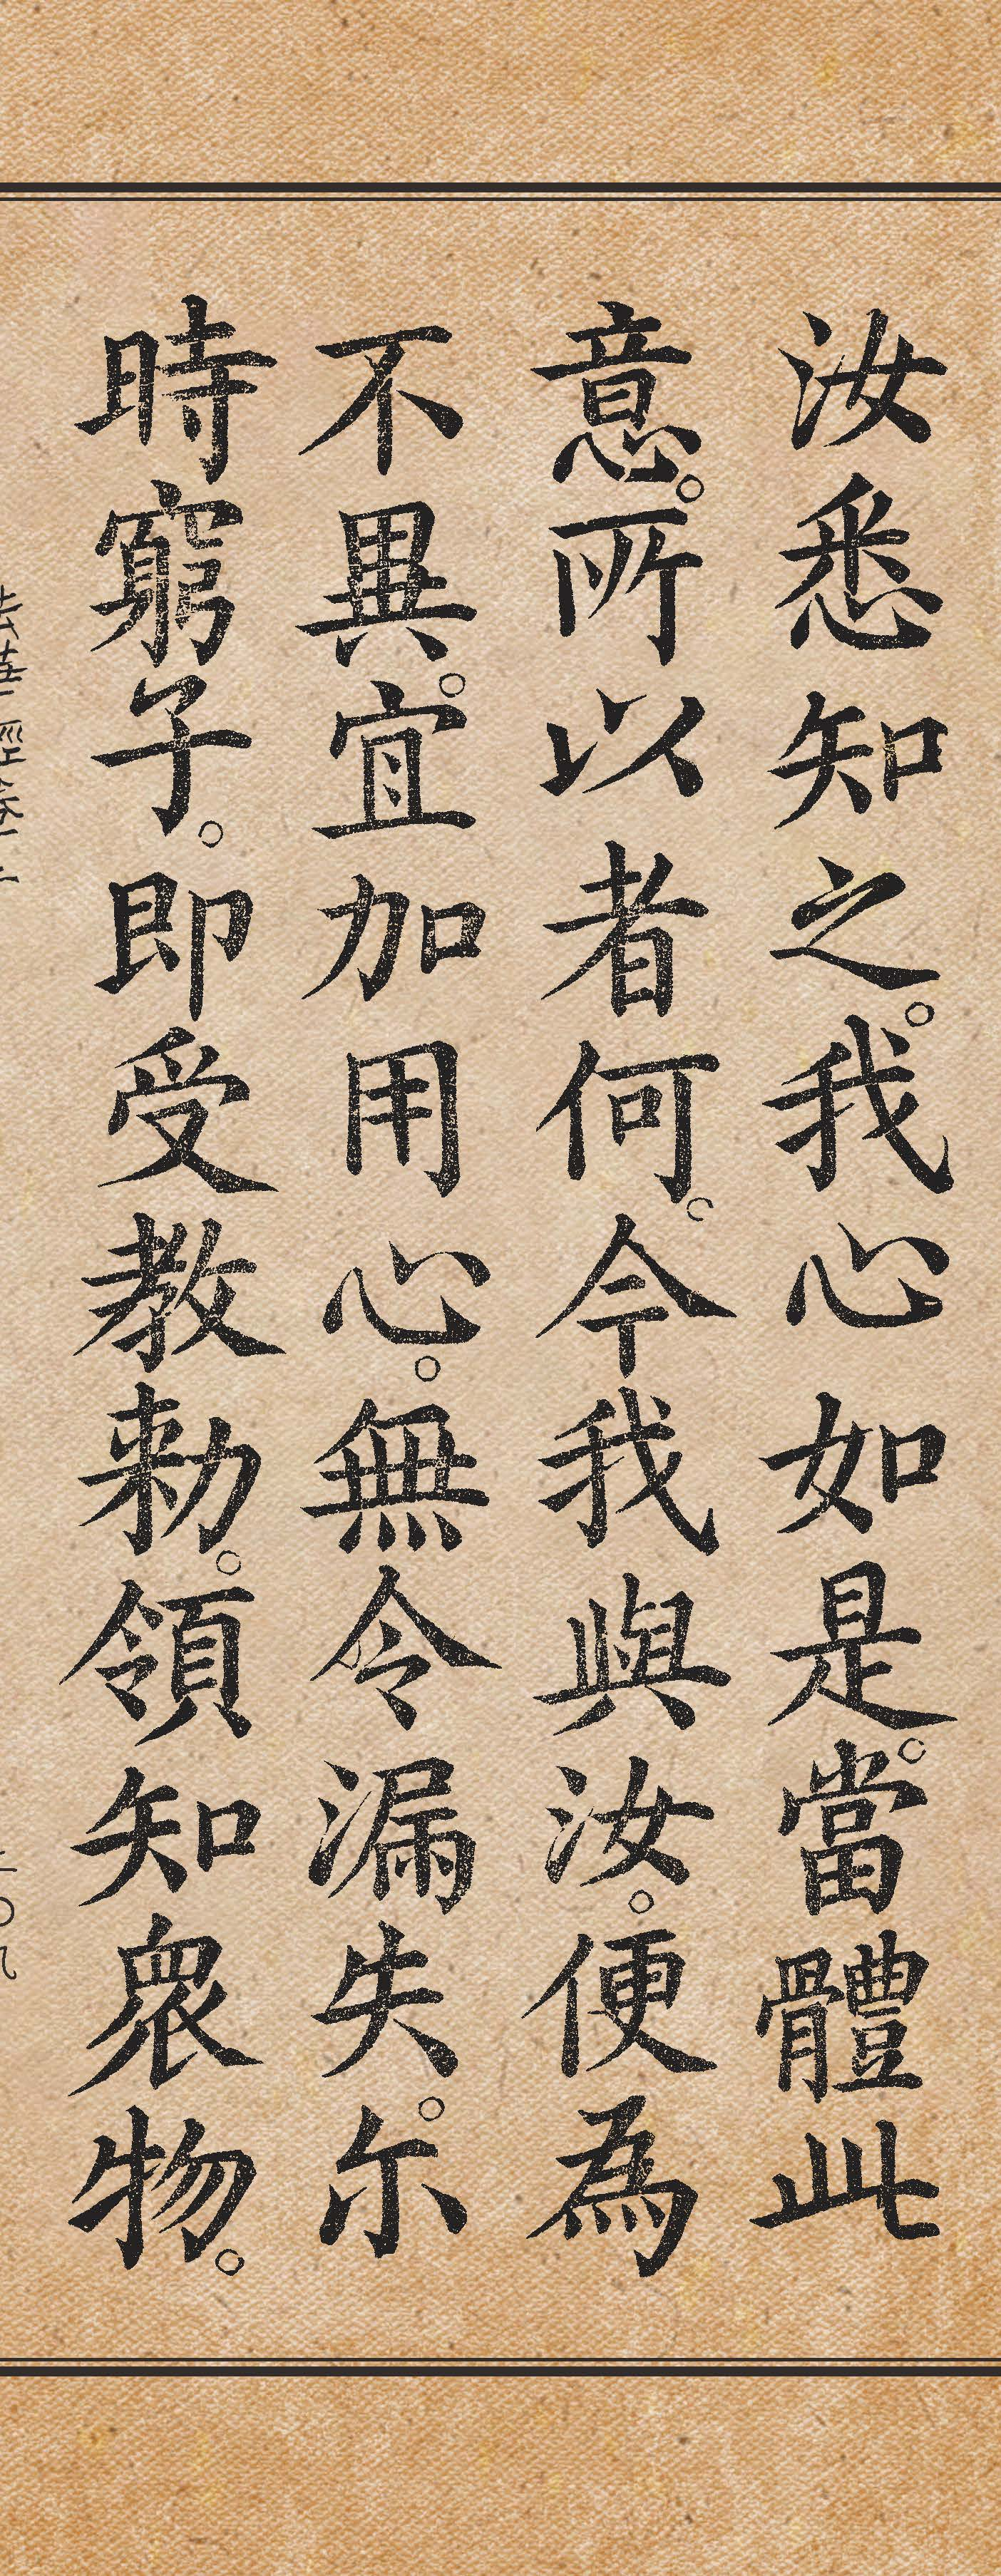 汝悉知之。我心如是。當體此
意。所以者何。今我與汝。便為
不異。宜加用心。無令漏失。尒
時窮子。即受教勑。領知眾物。